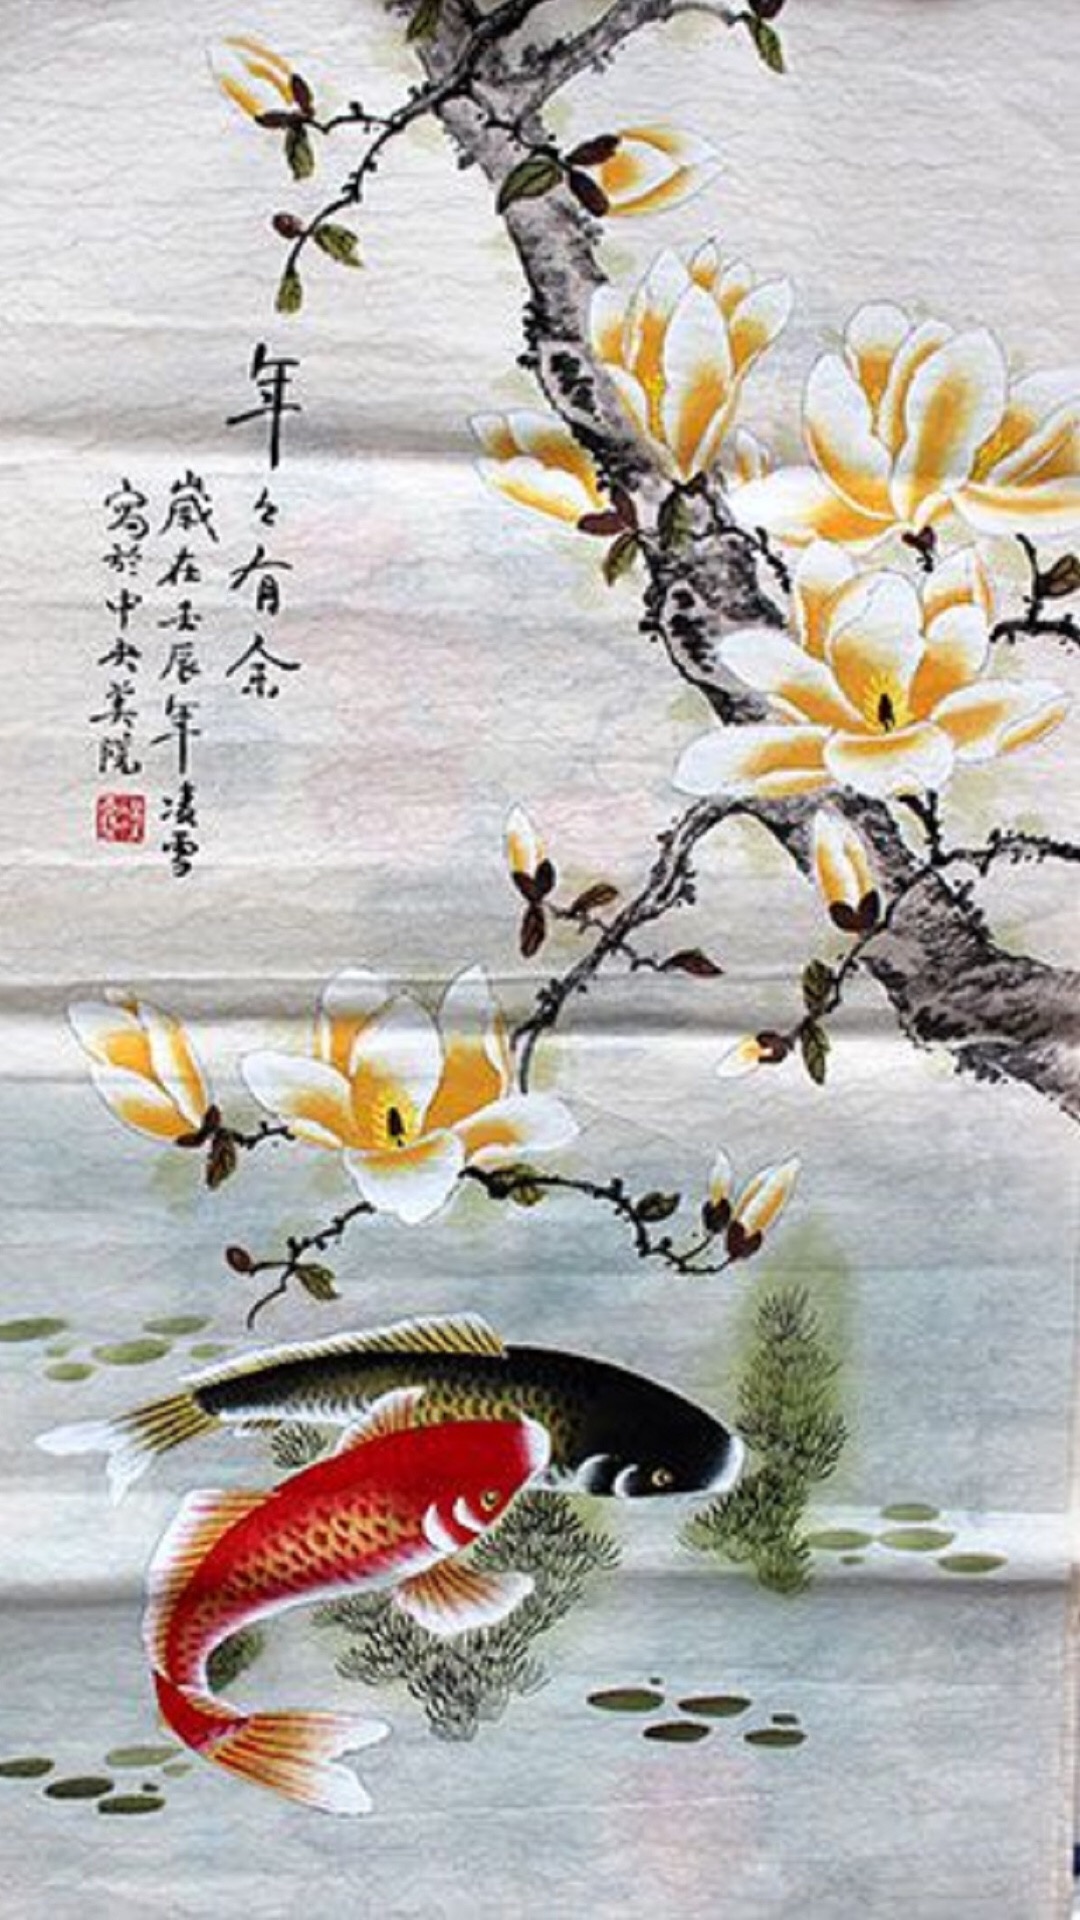 年々有余
歲在壬辰年凌雪
寫於中央美院